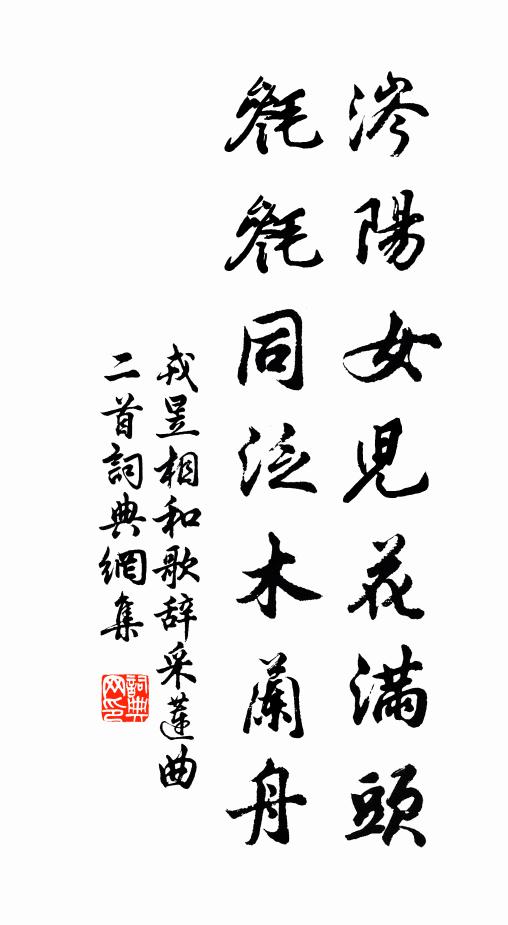 涔陽女兒花滿頭
毿毿同泛木蘭舟
戎昱相和歌辞采蓮曲
二首詞典網集
詞典
网印